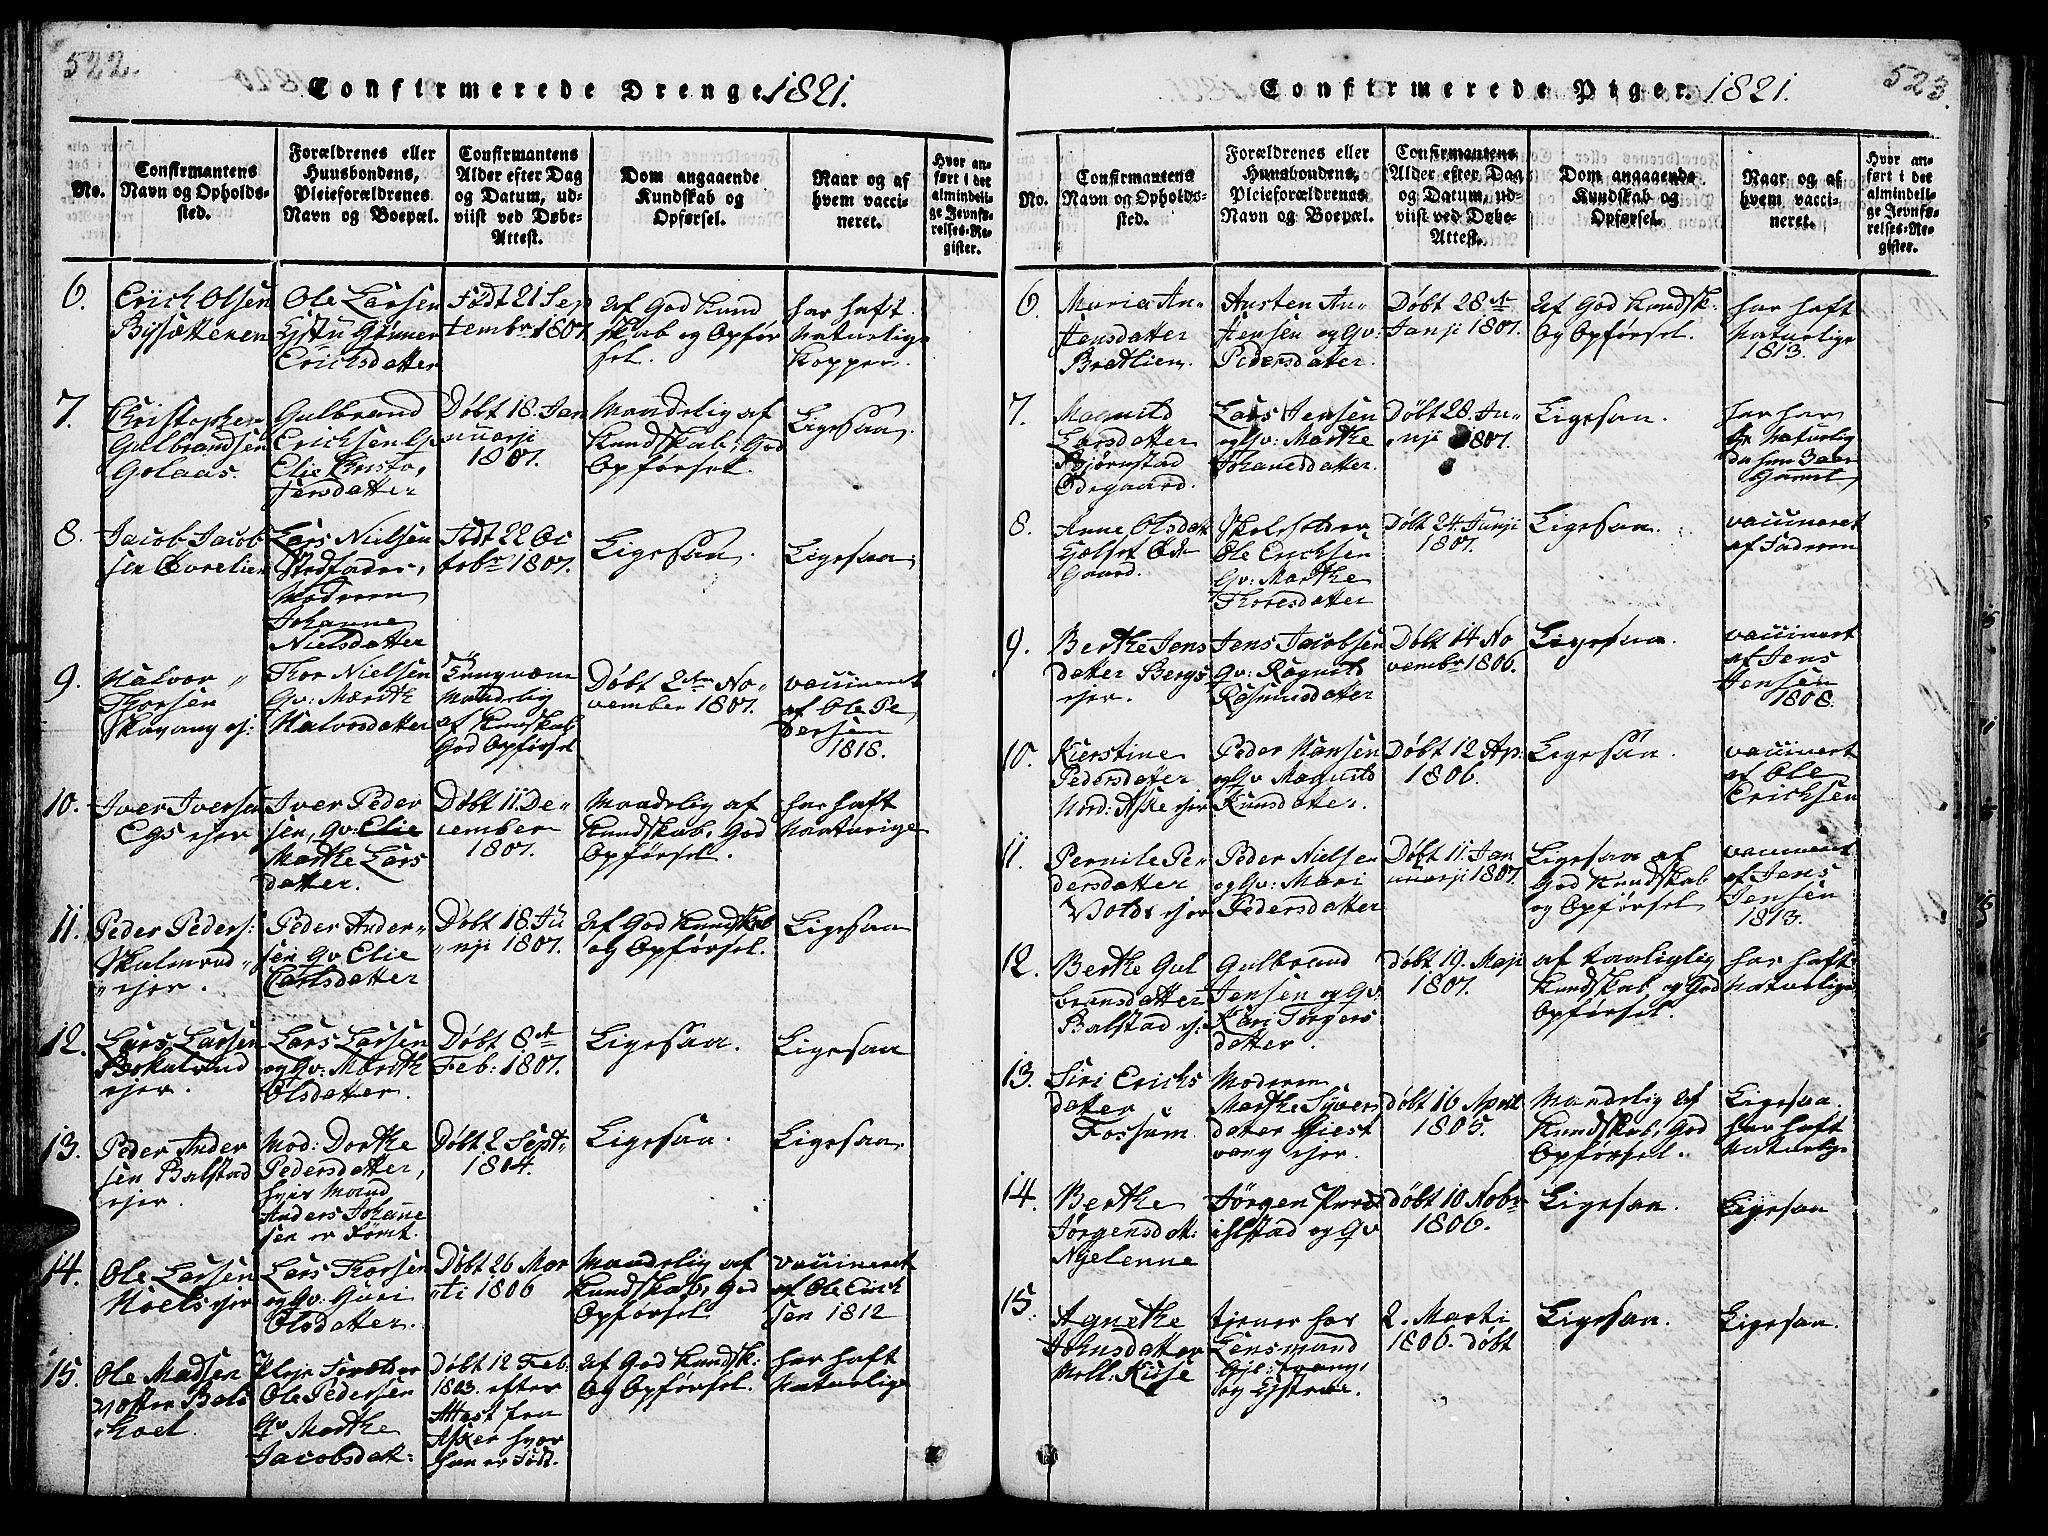 522.
Confirmerede Drenge 1821.
No.
Confirmantens
Navn og Opholds-
sted.
Forældrenes eller
Huusbondens,
Pleieforældrenes
Navn og Boepæl.
Confirmantens
Alder efter Dag
og Datum, ud-
viist ved Døbe-
Attest.
Dom angaaende
Kundskab og
Opførsel.
Naar og af
hvem vacci-
neret.
Hvor an-
ført i det
almindeli-
ge Jevnfø-
relses-Re-
gister.
6.
Erich Olsen
Ole Larsen
Erichsdatter
Født 21 Sep
tembr 1807
af God Kund
skab og Opfør
sel.
har haft
Naturlige
Kopper.
7.
Christopher
Gulbrandsen
Golaas.
Gulbrand
Erichsen Gv
Elie Christo,
fersdatter
Døbt 18. Jan
uuarji
1807.
Maadelig af
Kundskab, God
Opførsel.
Ligesaa.
8.
Jacob Jacob
sen
Lars Nielsen
Stedfader,
Moderen
Johanne
Nielsdatter
Født 22 Oc
tobr 1807.
Ligesaa.
Ligesaa
9.
Halvor
Thorsen
Thor Nielsen
Gv: Marith
Halvorsdatter
Maadelig
af Kundskab
God Opførsel
Døbt 2den No-
vember 1807.
vaccineret
af Ole Pe
dersen
1818.
10.
Iver Iversen
Egs ejer
Iver Peder
sen, Gv: Elie
Marthe Lars
datter.
Døbt 11. De-
cember
1807.
Maadelig af
Kundskab, God
Opførsel.
har haft
Naturlige
11.
Peder Peders:
ejer.
Peder Ander-
sen Gv Elie
Carlsdatter
Døbt 18. Ju
nji 1807.
af God Kundskab
og Opførsel.
Ligesaa
12.
Lars Larsen
ejer.
Lars Larsen
og Gv: Marith
Olsdatter.
Døbt 8de
Feb: 1807.
Ligesaa.
Ligesaa
13.
Peder Ander
sen Balstad
ejer.
Mod: Dorthe
Pedersdatter,
hvis Mand
Anders Johane
sen er Rømt.
Døbt 2 Sept-
1804.
Ligesaa.
Ligesaa
14.
Ole Larsen
Hoels ejer
Lars Thorsen
og Gv: Guri
Olsdatter.
Døbt 26 Mar
ti 1806
Maadelig af
Kundskab, God
Opførsel
vaccineret
af Ole Erich
sen 1812
15.
Ole Madsen
Ole Pedersen
Gv Marthe
Jacobsdat:
Døbt 12 Feb.
1803. efter
Attest fra
Asker hvor
han er Født.
af God Kundsk:
og Opførsel.
har haft
Naturlige
523.
Confirmerede Piger. 1821.
No.
Confirmantens
Navn og Opholds-
sted.
Forældrenes eller
Huusbondens,
Pleieforældrenes
Navn og Boepæl.
Confirmantens
Alder efter Dag
og Datum, ud-
viist ved Døbe-
Attest.
Dom angaaende
Kundskab og
Opførsel.
Naar og af
hvem vacci-
neret.
Hvor an-
ført i det
almindeli-
ge Jevnfø-
relses-Re-
gister.
6.
Maria An-
stensdatter
Brætlien
Austen An-
stensen og Gv:
Pedersdatter.
Døbt 28de
Junji 1807.
af God Kundsk.
Og Opførsel.
har haft
Naturlige
1813.
7.
Magnild
Larsdatter
Bjørnstad
Ødegaard.
Lars Jensen
og Gv: Marthe
Johanesdatter.
Døbt 28. Ju-
nji 1807.
Ligesaa.
8.
Anne Olsdatt
Gaard.
Skolholder
Ole Erichsen
Gv: Marthe
Thoresdatter
Døbt 24. Junji
1807.
Ligesaa.
vaccineret
af Faderen
9.
Berthe Jens
datter Bergs
ejer.
Jens Jacobsen
Gv: Ragnild
Rasmusdatter
Døbt 14 No
vembr 1806.
Ligesaa.
vaccinert
af Jens
Jensen
1808.
10.
Kierstine
Pedersdatter
Nord: Aske ejer
Peder Hansen
og Gv Magnild
Knusdatter.
Døbt 12 Ap:
1806.
Ligesaa.
vaccinert
af Ole
Erichsen
11.
Pernile Pe-
dersdatter
Volds ejer
Peder Nielsen
og Gv: Mari
Pedersdatter
Døbt 11. Jan
uuarji 1807.
Ligesaa af
God Kundskab
og Opførsel
vaccineret
af Jens
Jensen
1813.
12.
Berthe Gul
bransdatter
Balstad ej:
Gulbrand
Jensen og Gv:
Kari Torgers
datter.
døbt 19. Maji
1807.
af taaligelig
Kundskab og God
Opførsel.
har haft
Naturlige
13.
Siri Erichs
datter
Fossum
Moderen
Marthe Syvers
dater Hiest
vang ejer.
døbt 16 April
1805.
Maadelig af
Kundskab, God
Opførsel.
Ligesaa.
har haft
Naturlige
14.
Berthe
Jørgensdat:
Nyelenne
Jørgen
og Gv
døbt 10 Nobr
1806.
Ligesaa.
Ligesaa
15.
Agnethe
Johnsdatter
tjener hos
Lensmand
2. Marti
1806. døbt
Ligesaa.
Ligesaa.